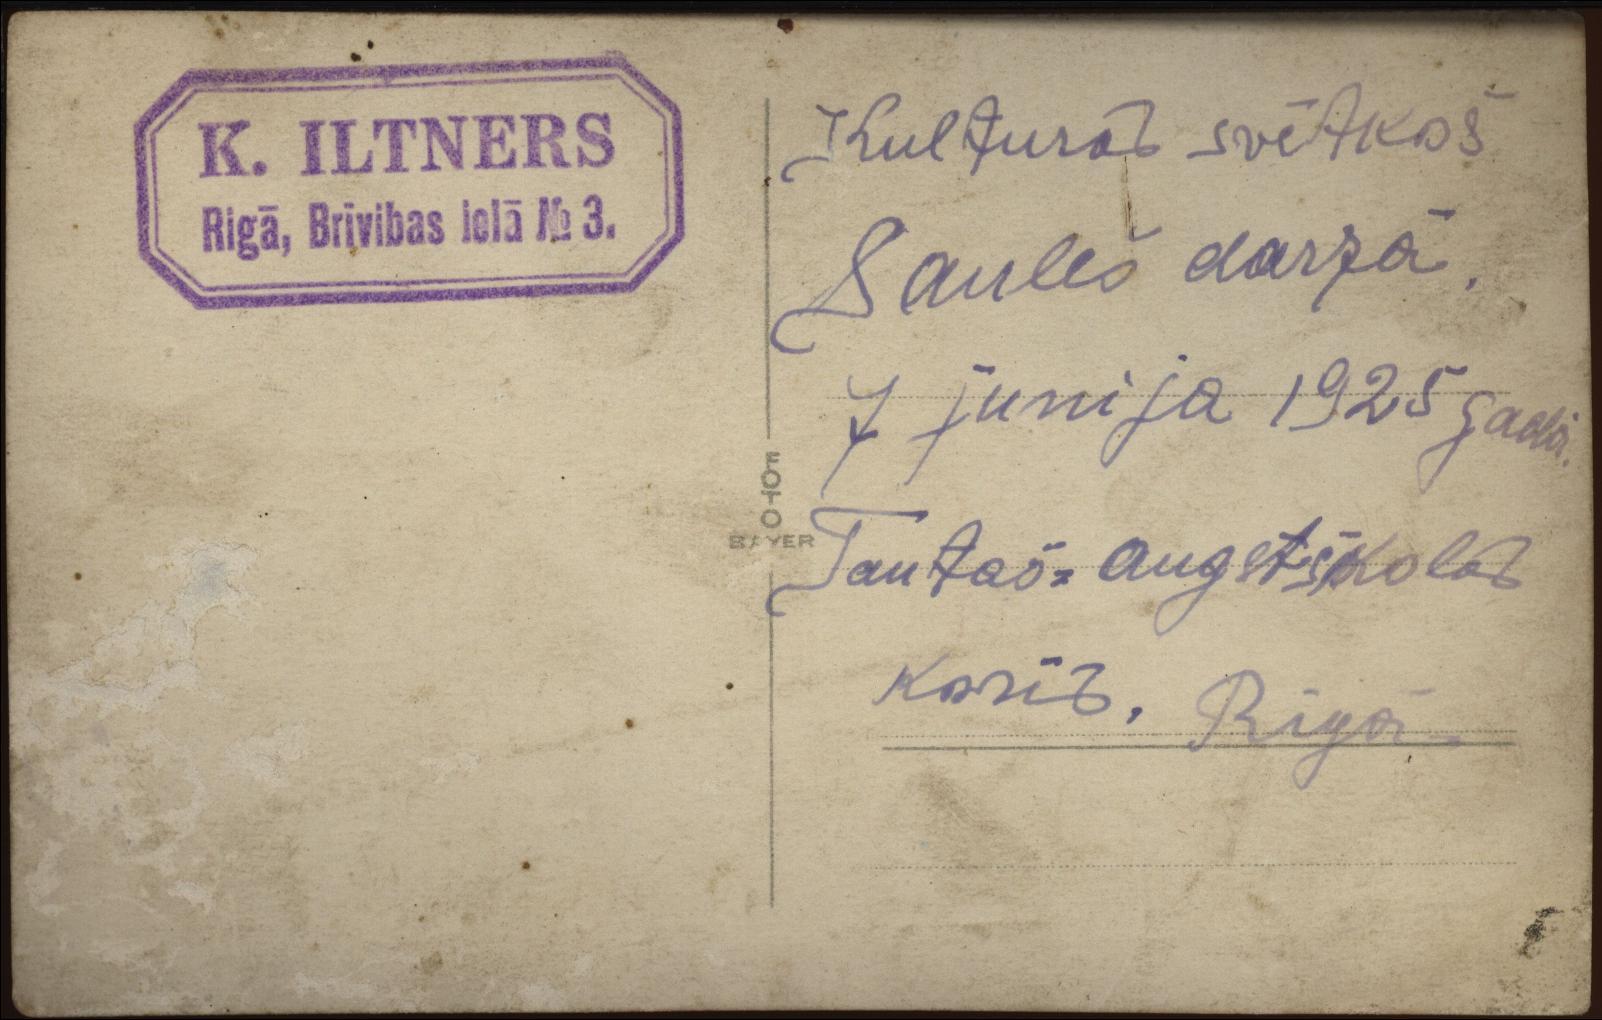 K. ILTNERS
Rigā, Brīvibas ielā № 3.
Kulturas svētkos
Saules darzā.
7 junija 1925 gadā.
FOTO
BAYER
Tautas= augstskolas
koris. Rigā